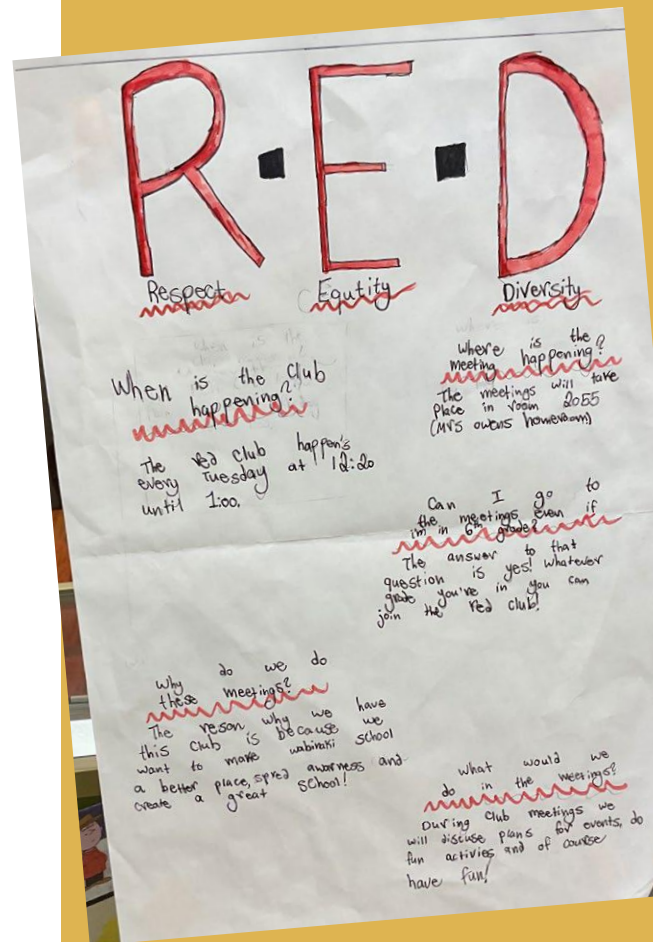 R·E·D
Respect Equtity Diversity
When is the Club
happening?
The red club happen's
every Tuesday at 12:20
until 1:00.
Where is the
meeting happening?
The meetings will take
place in room 2055
(Mrs owens homeroom)
Can I go to
the meetings even if
i'm in 6th grade?
The answer to that
question is yes! whatever
grade you're in you can
join the red club!
Why do we do
these meetings?
The reison why we have
this club is because we
want to make wabinaki school
a better place, spred awarness and
create a great school!
What would we
do in the meetings?
During club meetings we
will discuse plans for events, do
fun activies and of course
have fun!